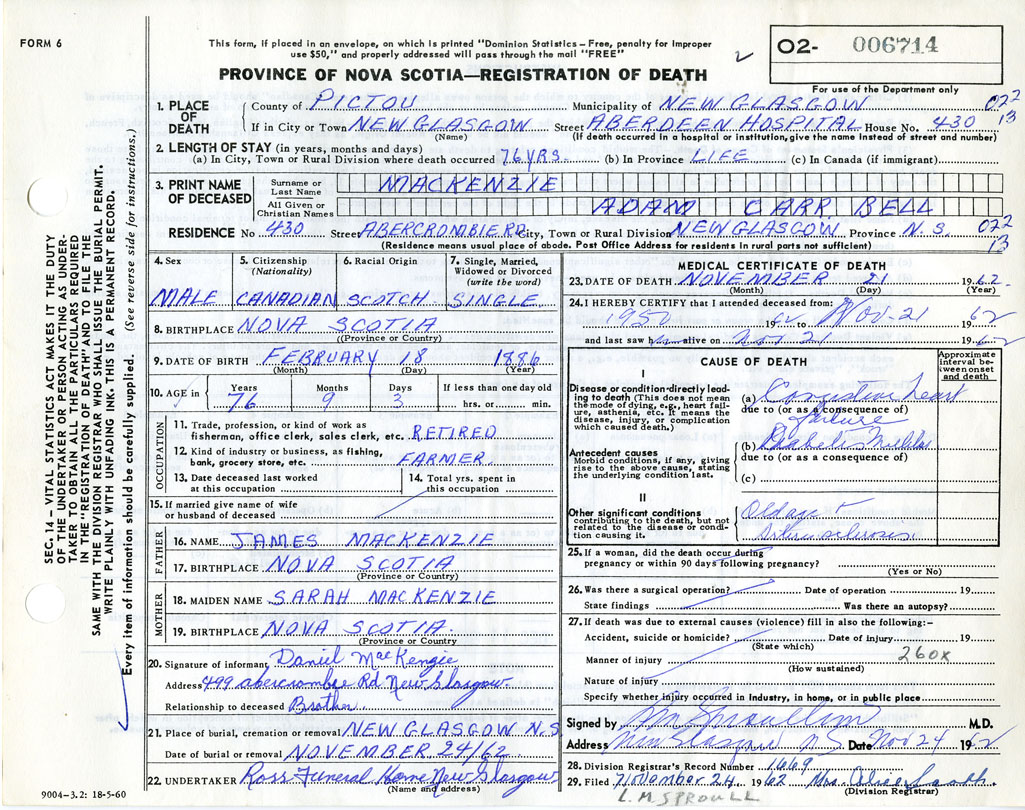 FORM 6
This form, if placed in an envelope, on which is printed "Dominion Statistics – Free, penalty for improper
use $50," and properly addressed will pass through the mail "FREE"
O2- 006714
PROVINCE OF NOVA SCOTIA—REGISTRATION OF DEATH
For use of the Department only
1. PLACE OF DEATH County of PICTOU Municipality of NEW GLASGOW 022
If in City or Town NEW GLASGOW Street ABERDEEN HOSPITAL House No. 430 13
(Name) (If death occurred in a hospital or institution, give the name instead of street and number)
2. LENGTH OF STAY (in years, months and days)
(a) In City, Town or Rural Division where death occurred 76 YRS. (b) In Province LIFE (c) In Canada (if immigrant)
3. PRINT NAME OF DECEASED Surname or Last Name MACKENZIE
All Given or Christian Names ADAM CARR BELL
RESIDENCE No 430 Street ABERCROMBIE RD City, Town or Rural Division NEW GLASGOW Province N. S. 022
13
(Residence means usual place of abode. Post Office Address for residents in rural parts not sufficient)
4. Sex 5. Citizenship (Nationality) 6. Racial Origin 7. Single, Married, Widowed or Divorced (write the word)
MALE CANADIAN SCOTCH SINGLE
8. BIRTHPLACE NOVA SCOTIA
(Province or Country)
9. DATE OF BIRTH FEBRUARY 18 1886
(Month) (Day) (Year)
10. AGE in Years Months Days If less than one day old
76 9 3 hrs. or min.
OCCUPATION
11. Trade, profession, or kind of work as
fisherman, office clerk, sales clerk, etc. RETIRED
12. Kind of industry or business, as fishing,
bank, grocery store, etc. FARMER
13. Date deceased last worked at this occupation 14. Total yrs. spent in this occupation
15. If married give name of wife
or husband of deceased
FATHER
16. NAME JAMES MACKENZIE
17. BIRTHPLACE NOVA SCOTIA
(Province or Country)
MOTHER
18. MAIDEN NAME SARAH MACKENZIE
19. BIRTHPLACE NOVA SCOTIA.
(Province or Country
20. Signature of informant Daniel MacKenzie
Address 499 Abercrombie Rd New Glasgow
Relationship to deceased Brother
21. Place of burial, cremation or removal NEW GLASGOW N.S
Date of burial or removal NOVEMBER 24/62
22. UNDERTAKER Ross Funeral Home New Glasgow
(Name and address)
9004-3.2: 18-5-60
MEDICAL CERTIFICATE OF DEATH
23. DATE OF DEATH NOVEMBER 21 1962
(Month) (Day) (Year)
24. I HEREBY CERTIFY that I attended deceased from:
1950 19 62 to Nov-21 19 62
and last saw him alive on Nov 21 1962
CAUSE OF DEATH
Approximate interval between onset and death
I
Disease or condition directly leading to death (This does not
mean the mode of dying, e.g., heart failure, asthenia, etc. It means the
disease, injury, or complication which caused death.)
(a) Congestive heart
due to (or as a consequence of)
failure
Antecedent causes
Morbid conditions, if any, giving
rise to the above cause, stating
the underlying condition last.
(b) Diabetes Mellitus
due to (or as a consequence of)
(c)
II
Other significant conditions
contributing to the death, but not
related to the disease or condition causing it.
Old age +
Arteriosclerosis
25. If a woman, did the death occur during
pregnancy or within 90 days following pregnancy?
(Yes or No)
26. Was there a surgical operation? Date of operation 19
State findings Was there an autopsy?
27. If death was due to external causes (violence) fill in also the following:–
Accident, suicide or homicide? Date of injury 19
(State which)
Manner of injury 260X
(How sustained)
Nature of injury
Specify whether injury occurred in industry, in home, or in public place
Signed by M.D.
Address New Glasgow N.S. Date Nov 24 1962
28. Division Registrar's Record Number 1669
29. Filed November 24, 1962 Mrs.
(Division Registrar)
L.M SPROULL
SEC. 14 – VITAL STATISTICS ACT MAKES IT THE DUTY
OF THE UNDERTAKER OR PERSON ACTING AS UNDER-
TAKER TO OBTAIN ALL THE PARTICULARS REQUIRED
IN THE "REGISTRATION OF DEATH" AND TO FILE THE
SAME WITH THE DIVISION REGISTRAR WHO SHALL ISSUE THE BURIAL PERMIT.
WRITE PLAINLY WITH UNFADING INK–THIS IS A PERMANENT RECORD.
Every item of information should be carefully supplied. (See reverse side for instructions.)